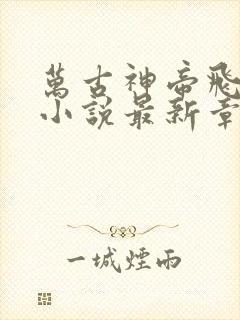 萬古神帝飛
小說最新章
一城煙雨